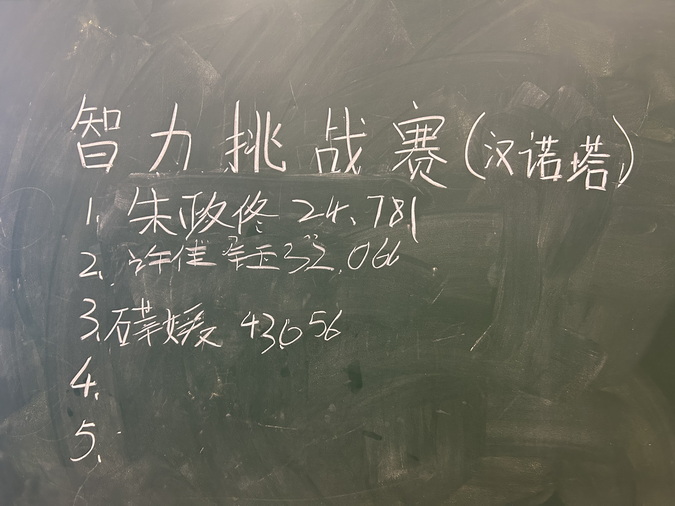 智力挑战赛(汉诺塔)
1. 朱政佟 24.781
2. 许佳钰 32.066
3. 石菲媛 43.056
4.
5.